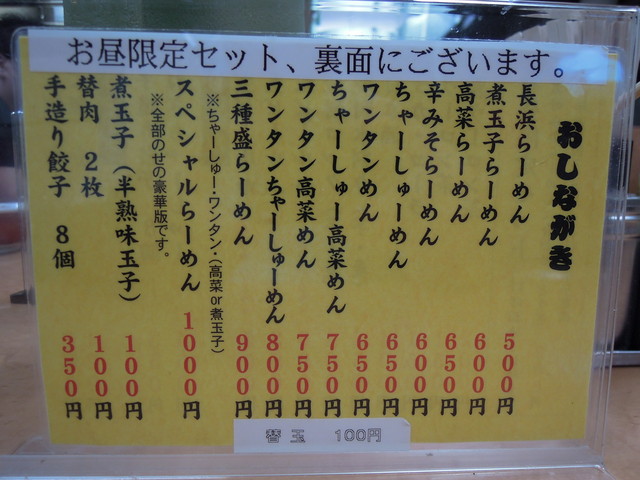 お昼限定セット、裏面にございます。
おしながき
長浜らーめん 500円
煮玉子らーめん 600円
高菜らーめん 650円
辛みそらーめん 600円
ちゃーしゅーめん 650円
ワンタンめん 650円
ちゃーしゅー高菜めん 750円
ワンタン高菜めん 750円
ワンタンちゃーしゅーめん 800円
三種盛らーめん 900円
※ちゃーしゅー・ワンタン・(高菜or煮玉子)
スペシャルらーめん 1000円
※全部のせの豪華版です。
煮玉子(半熟味玉子) 100円
替肉 2枚 100円
手造り餃子 8個 350円
替玉 100円